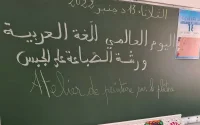 الثلاثاء 18 دجنبر
اليوم العالمي للغة العربية
ورشة الصباغة على الجبس
Atelier de peinture sur le plâtre